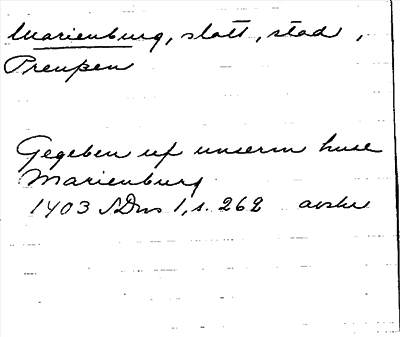 Marienburg, slott, stad,
Preuβen
Gegeben up unserm huse
Marienburg
1403 SDns 1, s. 262 avskr